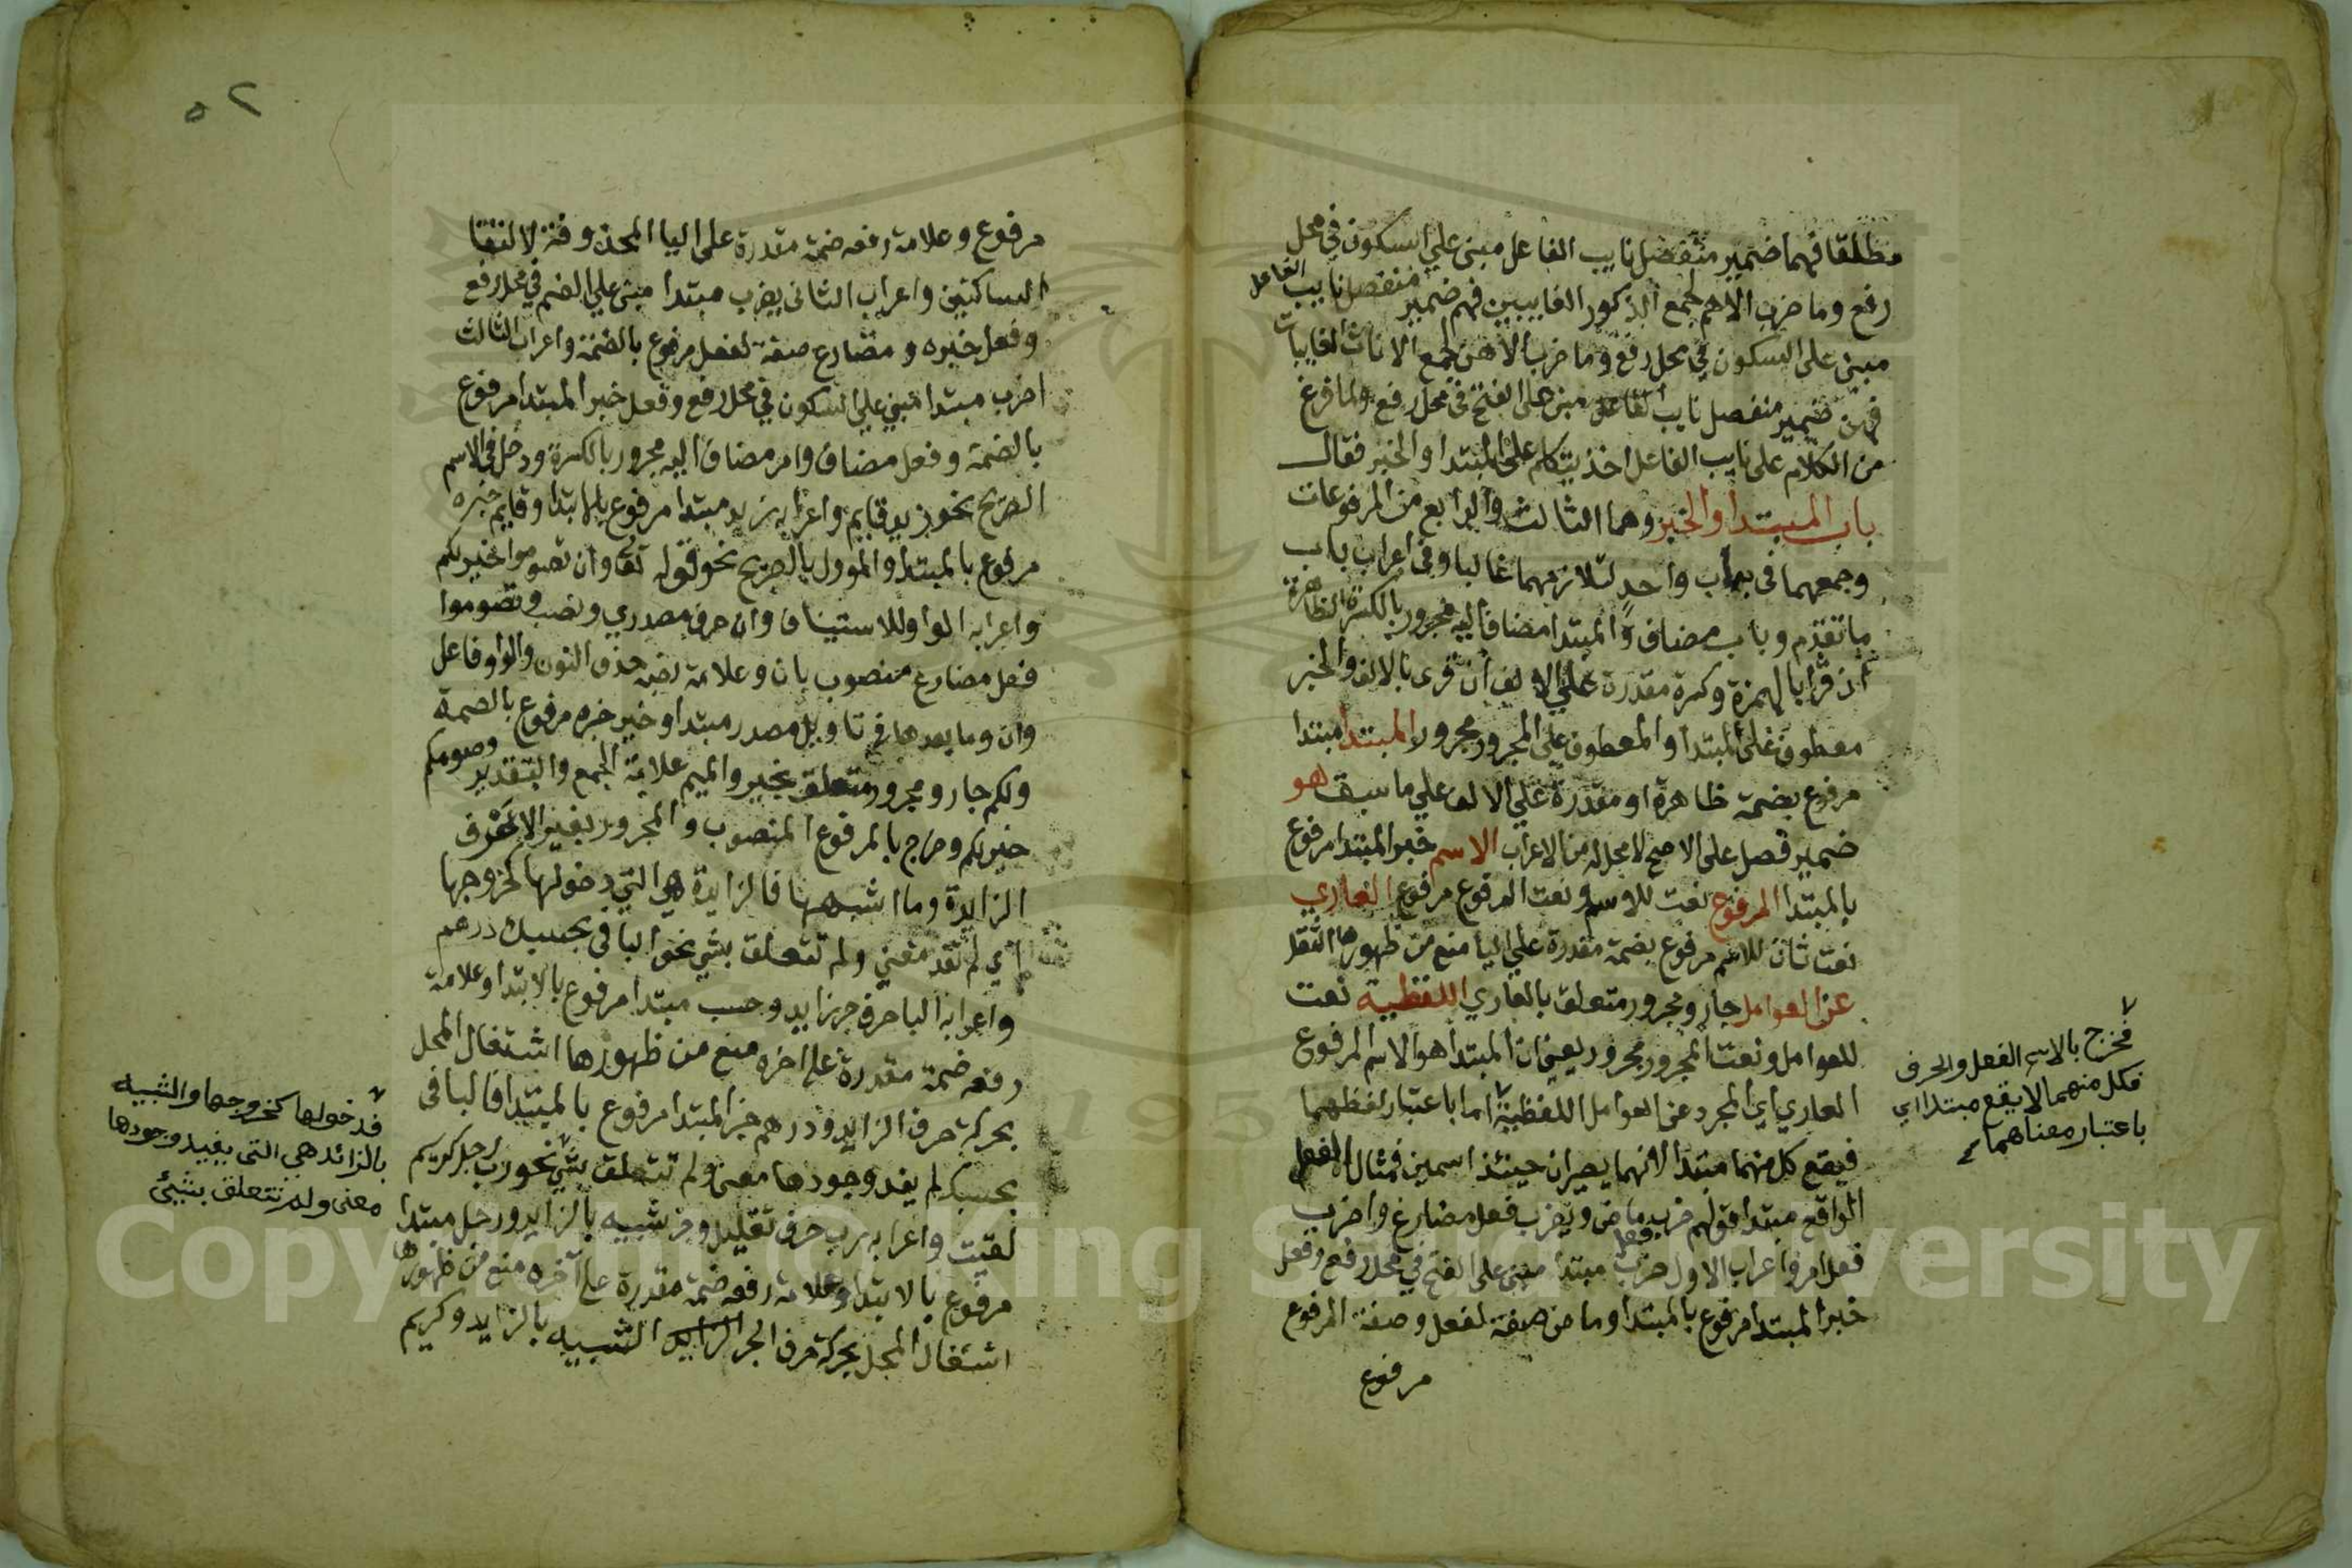 مطلقا فهما ضمير منفصل نايب الفاعل مبني علي السكون في محل
رفع وما ضرب الا هم لجمع الذكور الغايبين فهم ضمير منفصل نايب الفاعل
مبني على السكون في محل رفع وما ضرب الا هن لجمع الاناث الغايبات
فهن ضمير منفصل نايب الفاعل مبني على الفتح في محل رفع ولما فرغ
من الكلام على نايب الفاعل اخذ يتكلم على المبتدا والخبر فقال
باب المبتدا والخبر وهما الثالث والرابع من المرفوعات
وجمعهما في باب واحد لتلازمهما غالبا وفي اعراب باب
ما تقدم وباب مضاف والمبتدا مضاف اليه مجرور بالكسرة الظاهرة
ان قرا بالهمزة وكسرة مقدرة علي الالف ان قرى بالالف والخبر
معطوف على المبتدا والمعطوف على المجرور مجرور المبتدا مبتدا
مرفوع بضمة ظاهرة او مقدرة علي الالف علي ما سبق هو
ضمير فصل على الاصح لا محل له من الاعراب الاسم خبر المبتدا مرفوع
بالمبتدا المرفوع نعت للاسم ونعت المرفوع مرفوع العاري
نعت ثان للاسم مرفوع بضمة مقدرة علي اليا منع من ظهورها الثقل
عن العوامل جار ومجرور متعلق بالعاري اللفظية نعت
للعوامل ونعت المجرور مجرور يعني ان المبتدا هو الاسم المرفوع
العاري اي المجرد عن العوامل اللفظية اما باعتبار لفظهما
فيقع كل منهما مبتدا لانهما يصيران حينئذ اسمين فمثال الفعل
الواقع مبتدا قولهم ضرب ماض ويضرب فعل مضارع واضرب
فعل امر واعراب الاول ضرب فعل مبتدا مبني على الفتح في محل رفع وفعل
خبر المبتدا مرفوع بالمبتدا وماض صفة لفعل وصفة المرفوع
مرفوع
فخرج بالاسم الفعل والحرف
فكل منهما لا يقع مبتدا اي
باعتبار معناهما
٥٢
مرفوع وعلامة رفعه ضمة مقدرة على اليا المحذوفة لالتقا
الساكنين واعراب الثاني يضرب مبتدا مبني علي الضم في محل رفع
وفعل خبره ومضارع صفة لفعل مرفوع بالضمة واعراب الثالث
اضرب مبتدا مبني علي السكون في محل رفع وفعل خبر المبتدا مرفوع
بالضمة وفعل مضاف وامر مضاف اليه مجرور بالكسرة ودخل في الاسم
الصريح نحو زيد قايم واعرابه زيد مبتدا مرفوع بالابتدا وقايم خبره
مرفوع بالمبتدا والموول بالصريح نحو قوله تعالى وان تصوموا خير لكم
واعرابه الواو للاستيناف وان حرف مصدري ونصب وتصوموا
فعل مضارع منصوب بان وعلامة نصبه حذف النون والواو فاعل
وان وما بعدها في تاويل مصدر مبتدا وخير خبره مرفوع بالضمة
ولكم جار ومجرور متعلق بخير والميم علامة الجمع والتقدير وصومكم
خير لكم وخرج بالمرفوع المنصوب والمجرور بغير الاحرف
الزايدة وما اشبهها فالزايدة هي التي دخولها كخروجها
اي لم تفد معني ولم تتعلق بشي نحو البا في بحسبك درهم
واعرابه البا حرف جر زايد وحسب مبتدا مرفوع بالابتدا وعلامة
رفعه ضمة مقدرة على اخره منع من ظهورها اشتغال المحل
بحركة حرف الزايد ودرهم خبر المبتدا مرفوع بالمبتدا فالبا في
بحسبك لم يفد وجودها معنى ولم تتعلق بشي نحو رب رجل كريم
لقيت واعرابه رب حرف تقليل وجر شبيه بالزايد ورجل مبتدا
مرفوع بالابتدا وعلامة رفعه ضمة مقدرة على آخره منع من ظهورها
اشتغال المحل بحركة حرف الجر الزايد الشبيه بالزايد وكريم
فدخولها كخروجها والشبيه
بالزائد هي التي يفيد وجودها
معنى ولم تتعلق بشيئ
Copyright © King Saud University
195